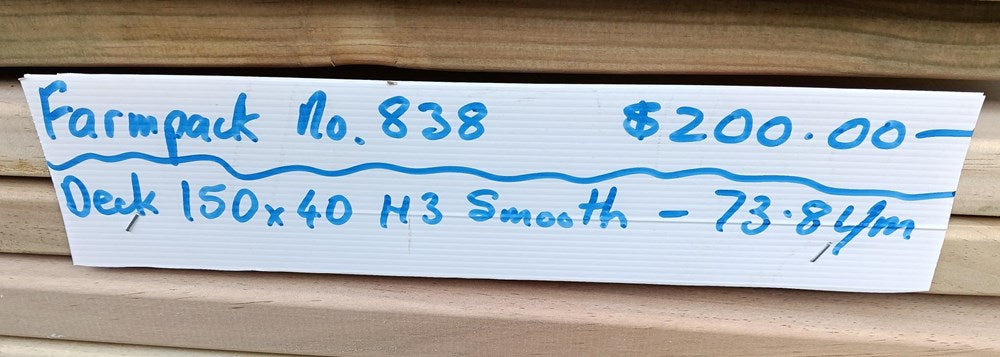 Farmpack No. 838 $200.00—
Deck 150x40 H3 Smooth - 73.8 L/m